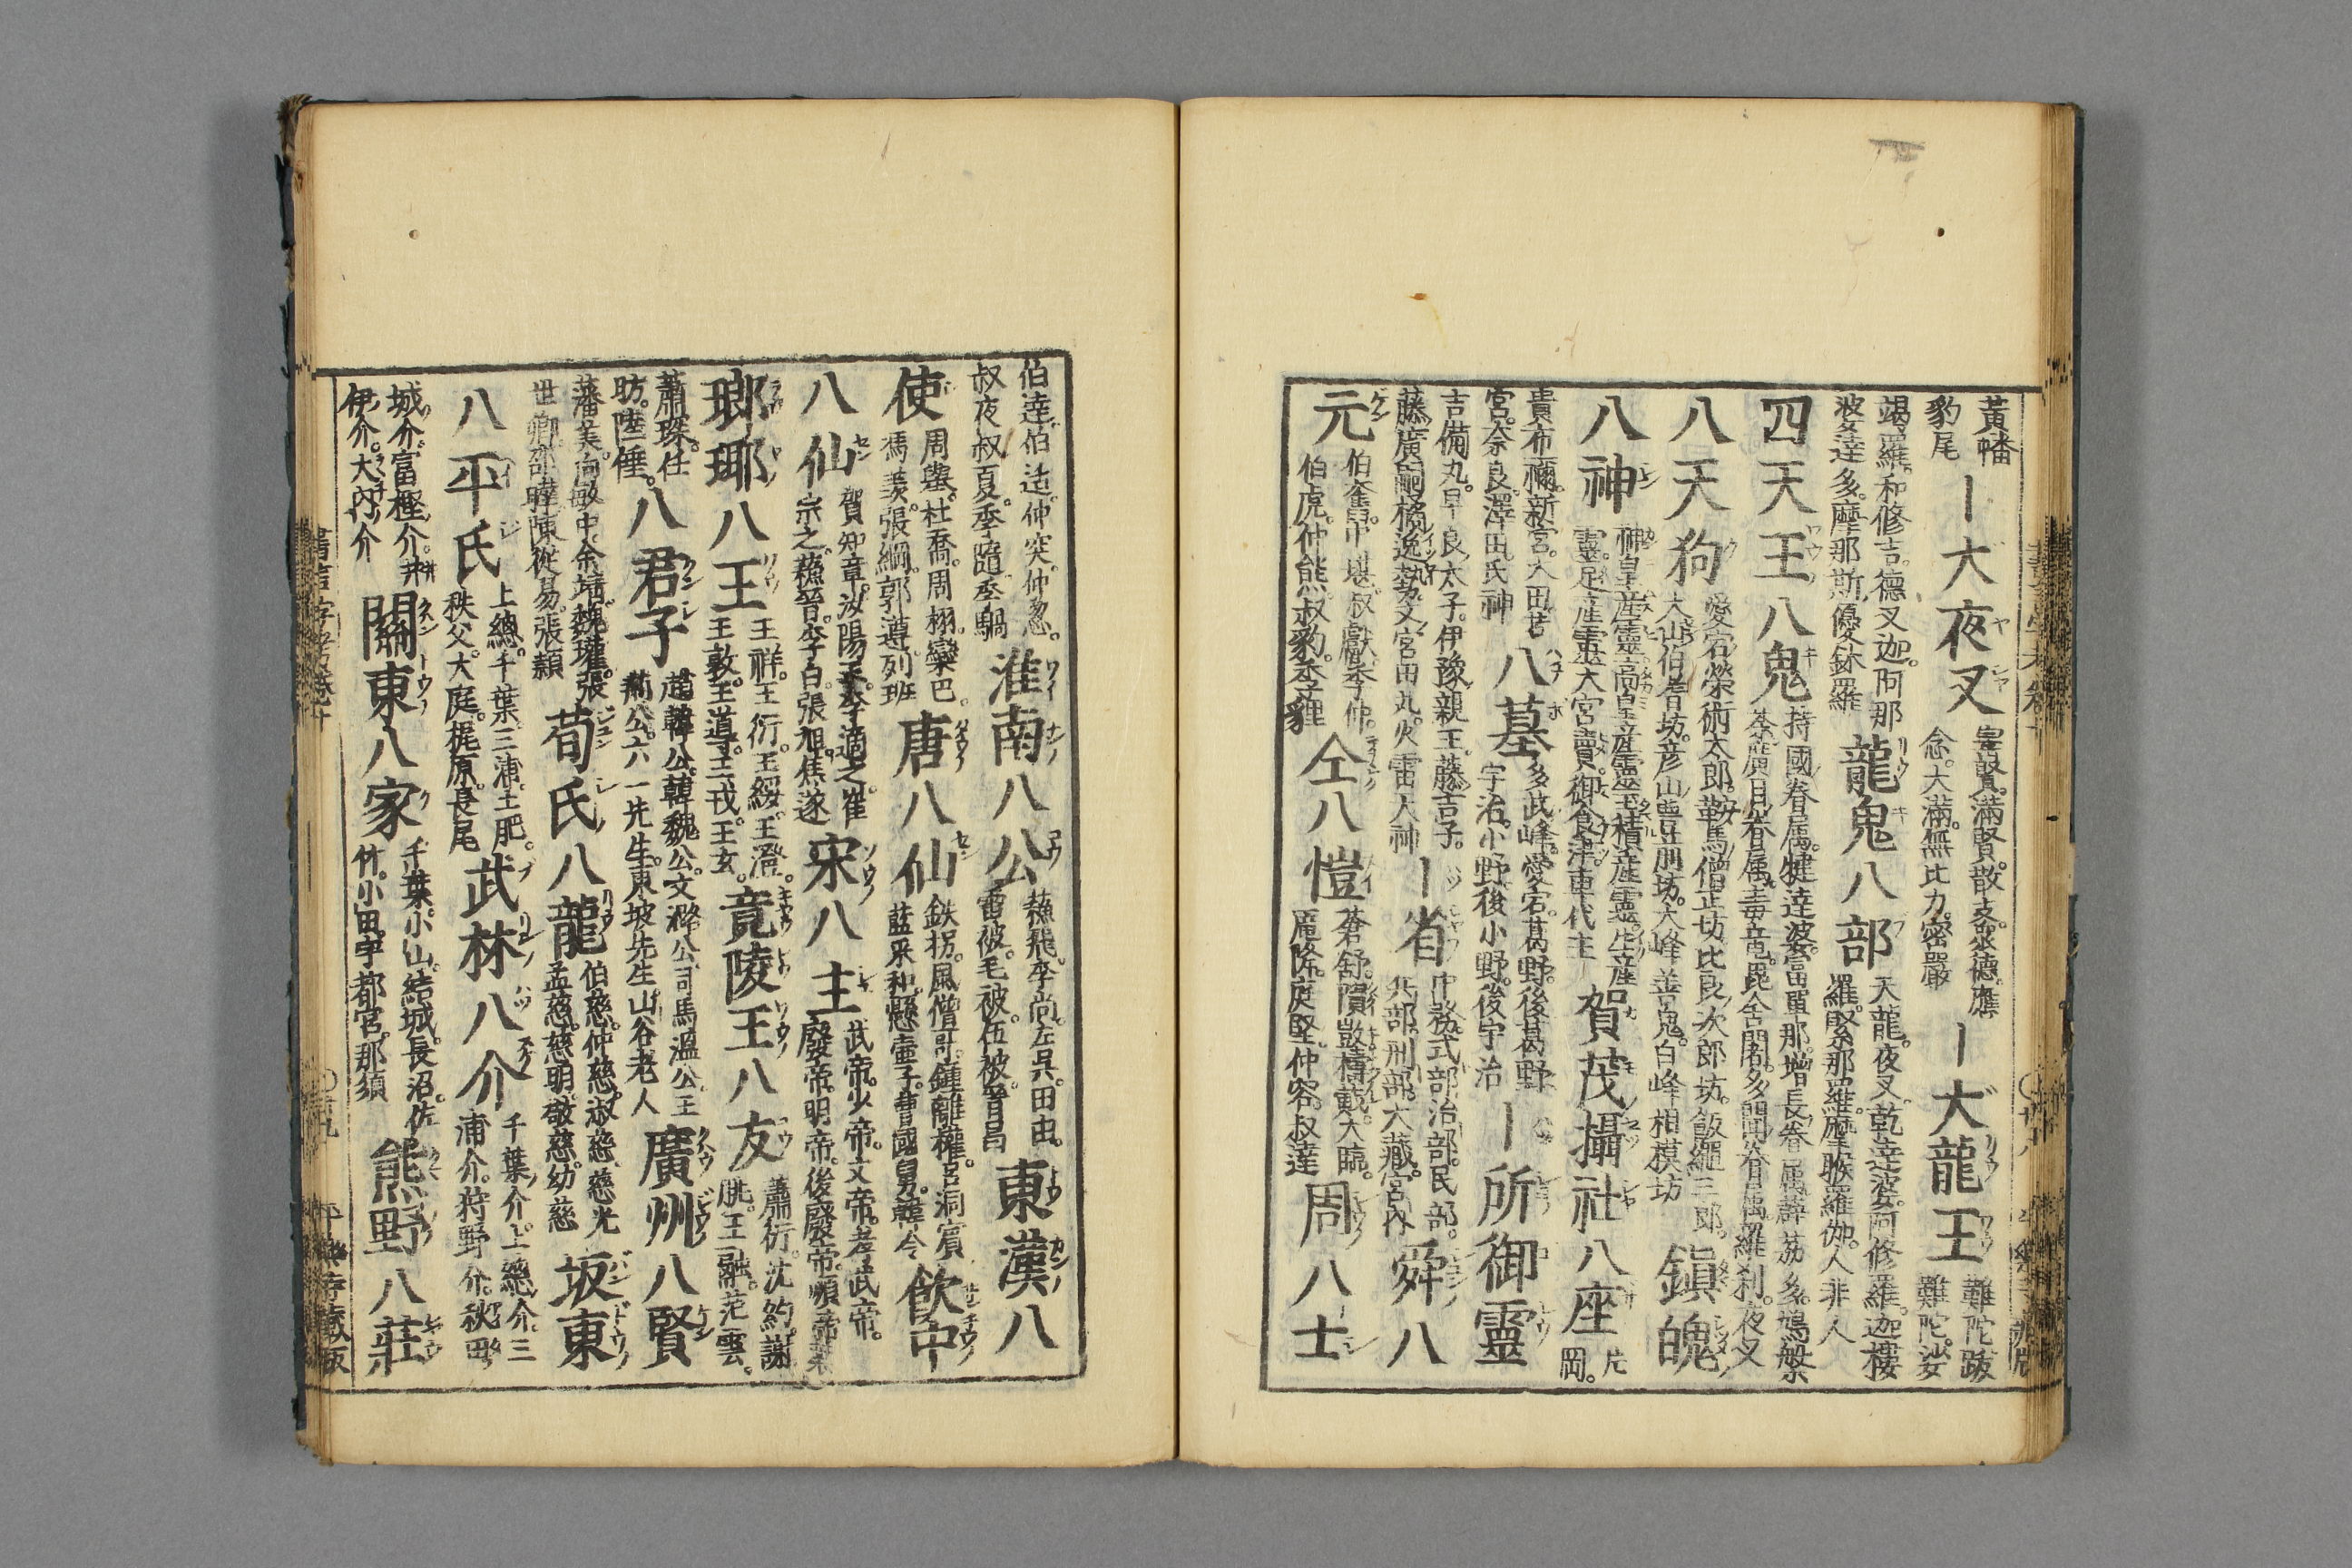 黃幡豹尾｜大夜叉寶賢。滿賢。散支。衆德。應念。大滿。無比力。密嚴｜大龍王難陀跋難陀。娑
竭羅。和修吉。德叉迦。阿那婆達多。摩那斯。優鉢羅龍鬼八部天龍。夜叉。乾達婆。阿修羅。迦樓羅。緊那羅。摩睺羅伽。人非人
四天王八鬼持國眷属。犍達婆。富單那。增長眷属。薜茘多。鳩槃荼。廣目眷属。毒竜。毘舍闍。多聞眷属。羅刹。夜叉
八天狗愛宕榮術太郎。鞍馬僧正坊。比良次郎坊。飯繩三郎。大山伯耆坊。彦山豊前坊。大峰善鬼。白峰相模坊鎮魄
八神神皇産靈。高皇産靈。玉積産靈。生産靈。足産靈。大宮賣。御食津。事代主賀茂攝社八座片岡。
貴布禰。新宮。大田。若宮。奈良。澤田。氏神八墓多武峰。愛宕。葛野。後葛野。宇治。小野。後小野。後宇治｜所御靈
吉備丸。早良太子。伊豫親王。藤吉子。藤廣嗣。橘逸勢。文宮田丸。火雷大神｜省中務。式部。治部。民部。兵部。刑部。大藏。宮内舜八
元伯奮。中堪。叔獻。季仲。伯虎。仲熊。叔豹。季貍仝八愷蒼舒。隤敱。檮戭。大臨。尨降。庭堅。仲容。叔達周八士
伯達。伯适。仲突。仲忽。叔夜。叔夏。季隨。季騧淮南八公蘓飛。李尚。左呉。田由。雷被。毛被。伍被。晉昌東漢八
使周擧。杜喬。周栩。欒巴。馮羨。張綱。郭遵。列班唐八仙鉄拐。風僧哥。鍾離權。呂洞賓。藍采和。懸壷子。曹國舅。韓令飲中
八仙賀知章。汝陽王。李適之。崔宗之。蘓晉。李白。張旭。焦遂宋八主武帝。少帝。文帝。孝武帝。廢帝。明帝。後廢帝。順帝
瑯琊八王王祥。王衍。王綏。王澄。王敦。王道。王戎。王玄。竟陵王八友蕭衍。沈約。謝朓。王融。范雲。
蕭琛。任昉。陸倕。八君子趙韓公。韓魏公。文潞公。司馬溫公。王荊公。六一先生。東坡先生。山谷老人廣州八賢
藩美。向敏中。余靖。魏瓘。張世卿。邵曄。陳從易。張頴荀氏八龍伯慈。仲慈。叔慈。慈光。孟慈。慈明。敬慈。幼慈坂東
八平氏上總。千葉。三浦。土肥。秩父。大庭。梶原。長尾武林八介千葉介。上總介。三浦介。狩野介。秋田
城介。富樫介。井伊介。大内介關東八家千葉。小山。結城。長沼。佐竹。小田。宇都宮。那須熊野八莊